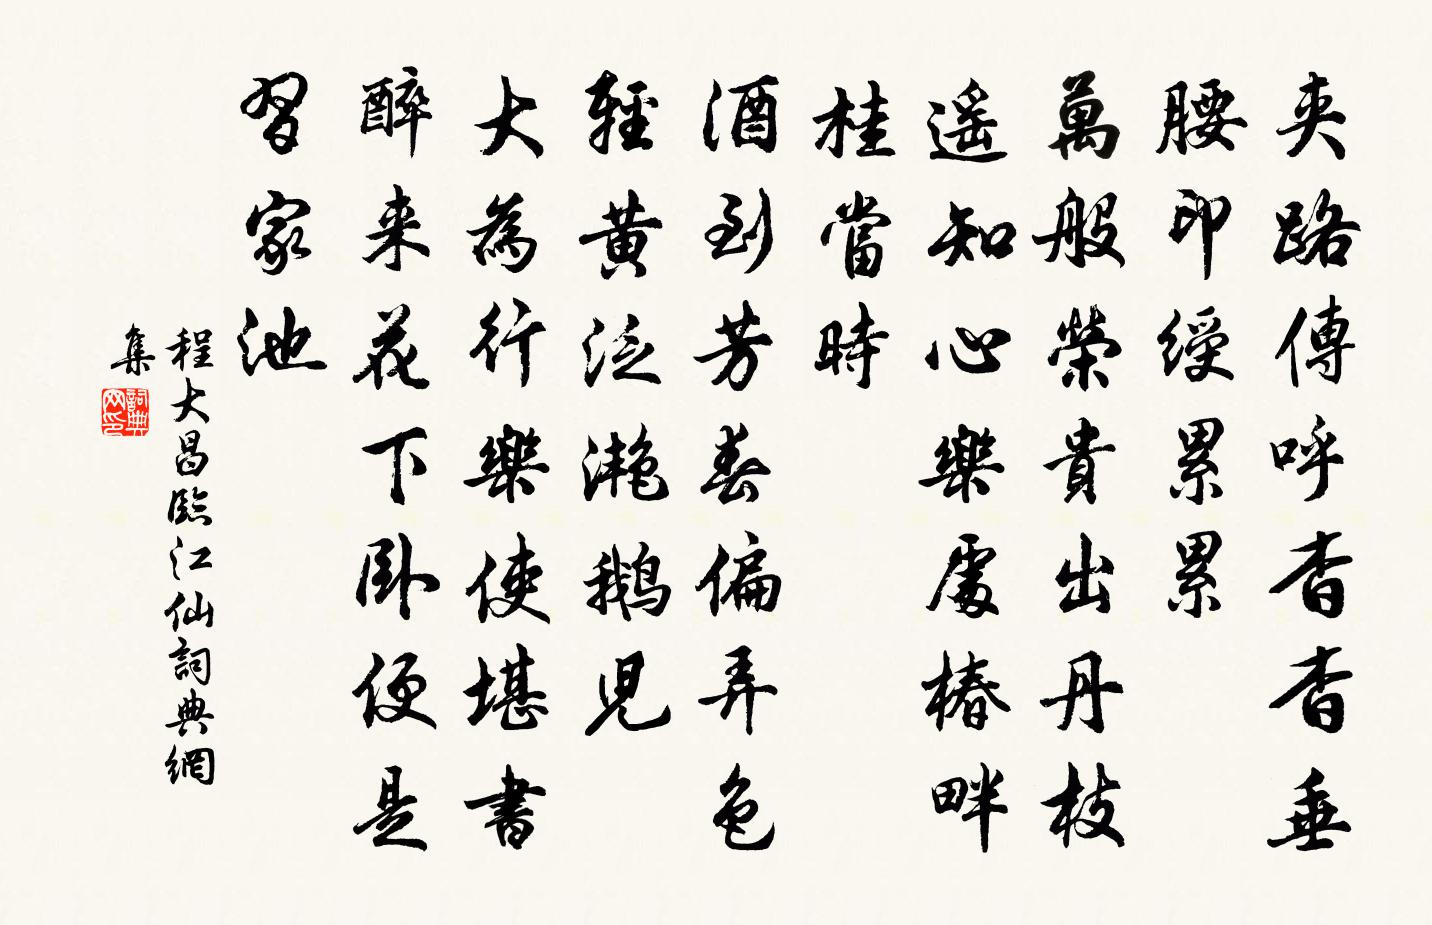 夹路傳呼杳杳垂
腰印綬累累
萬般榮貴出丹枝
遥知心樂處椿畔
桂當時
酒到芳春偏弄色
輕黄泛灔鹅児
大為行樂使堪書
醉来花下卧便是
習家池
程大昌臨江仙詞典網
集
詞典网印